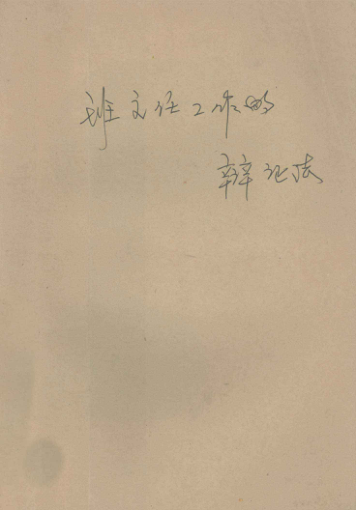 班主任工作的
辩证法